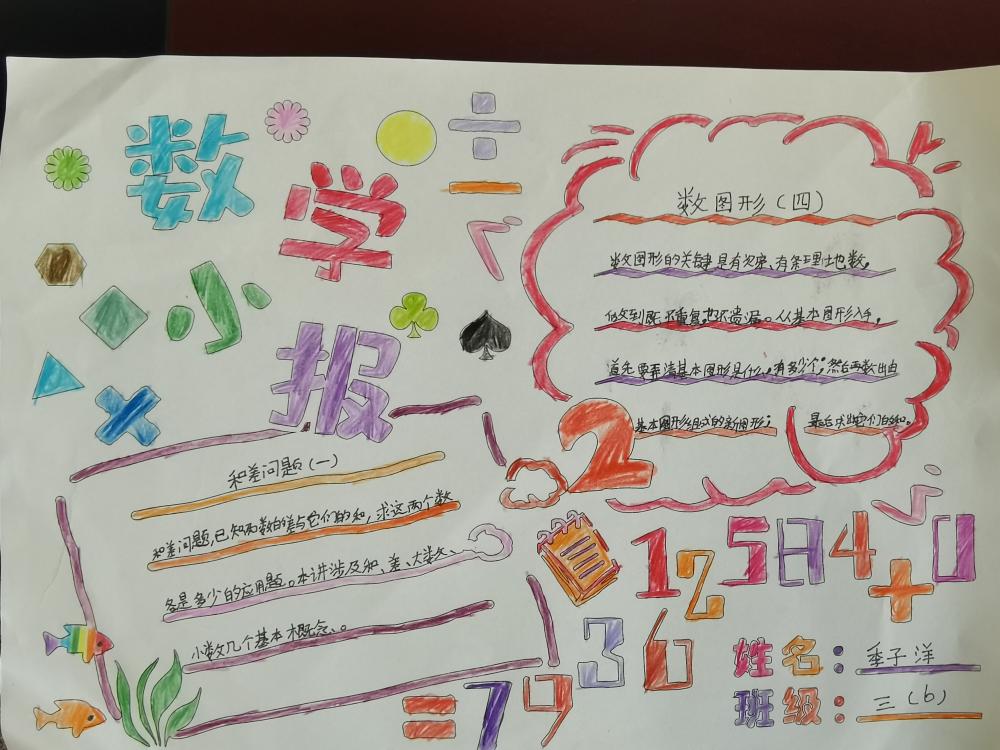 数学小报
÷
－
×
数图形（四）
数图形的关键是有次序、有条理地数，
做到既不重复也不遗漏。从基本图形入手，
首先要弄清基本图形是什么，有多少个；然后再数出由
基本图形组成的新图形；最后求出它们的和。
2
和差问题（一）
和差问题，已知两数的差与它们的和，求这两个数
各是多少的应用题。本讲涉及和、差、大数、
小数几个基本概念。
1 2 5 8 4 + 0
3 6
= 7 9
姓名：季子洋
班级：三（6）